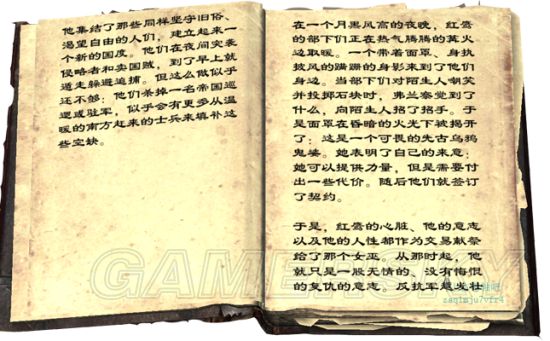 他集结了那些同样坚守旧俗、
渴望自由的人们，建立起来一
个新的国度。他们在夜间突袭
侵略者和卖国贼，到了早上就
遁走躲避追捕。但这么做似乎
还不够：他们杀掉一名帝国巡
逻或驻军，似乎会有更多从温
暖的南方赶来的士兵来填补这
些空缺。
在一个月黑风高的夜晚，红鹰
的部下们正在热气腾腾的篝火
边取暖。一个带着面罩、身执
披风的蹒跚的身影来到了他们
身边。当部下们对陌生人嘲笑
并投掷石块时，弗兰察觉到了
什么，向陌生人招了招手。于
是面罩在昏暗的火光下被揭开
了：这是一个可畏的失古乌鸦
鬼婆。她表明了自己的来意：
她可以提供力量，但是需要付
出一些代价。随后他们就签订
了契约。
于是，红鹰的心脏、他的意志
以及他的人性都作为交易献祭
给了那个女巫。从那时起，他
就只是一股无情的、没有悔恨
的复仇的意志。反抗军愈发壮
GAMERSKY
zaq1mju7vfr4